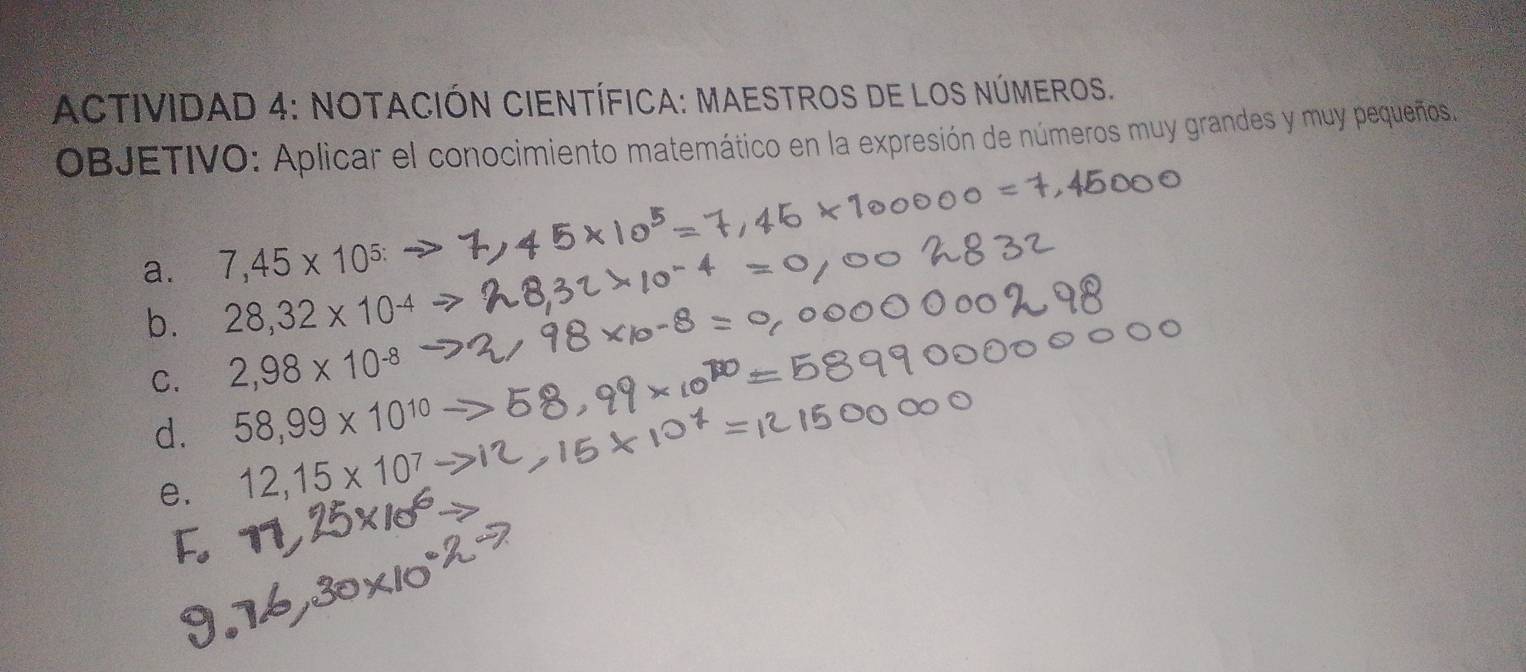 ACTIVIDAD 4: NOTACIÓN CIENTÍFICA: MAESTROS DE LOS NÚMEROS.
OBJETIVO: Aplicar el conocimiento matemático en la expresión de números muy grandes y muy pequeños.
a. 7,45 x 10⁵: → 7,45 × 10⁵ = 7,45 × 100000 = 7,45000
b. 28,32 x 10⁻⁴ → 28,32 × 10⁻⁴ = 0,002832
c. 2,98 x 10⁻⁸ → 2,98 × 10⁻⁸ = 0,0000000298
d. 58,99 x 10¹⁰ → 58,99 × 10¹⁰ = 589900000000
e. 12,15 x 10⁷ → 12,15 × 10⁷ = 121500000
F. 11,25×10⁶ →
g. 16,30×10⁻² →